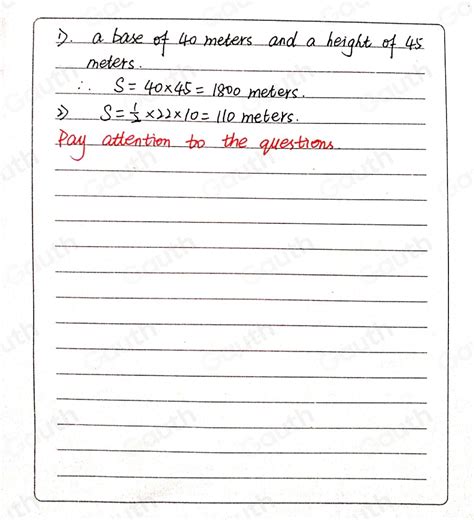 1). a base of 40 meters and a height of 45
meters.
∴ S = 40×45 = 1800 meters.
2) S = 1/2 ×22×10 = 110 meters.
Pay attention to the questions.